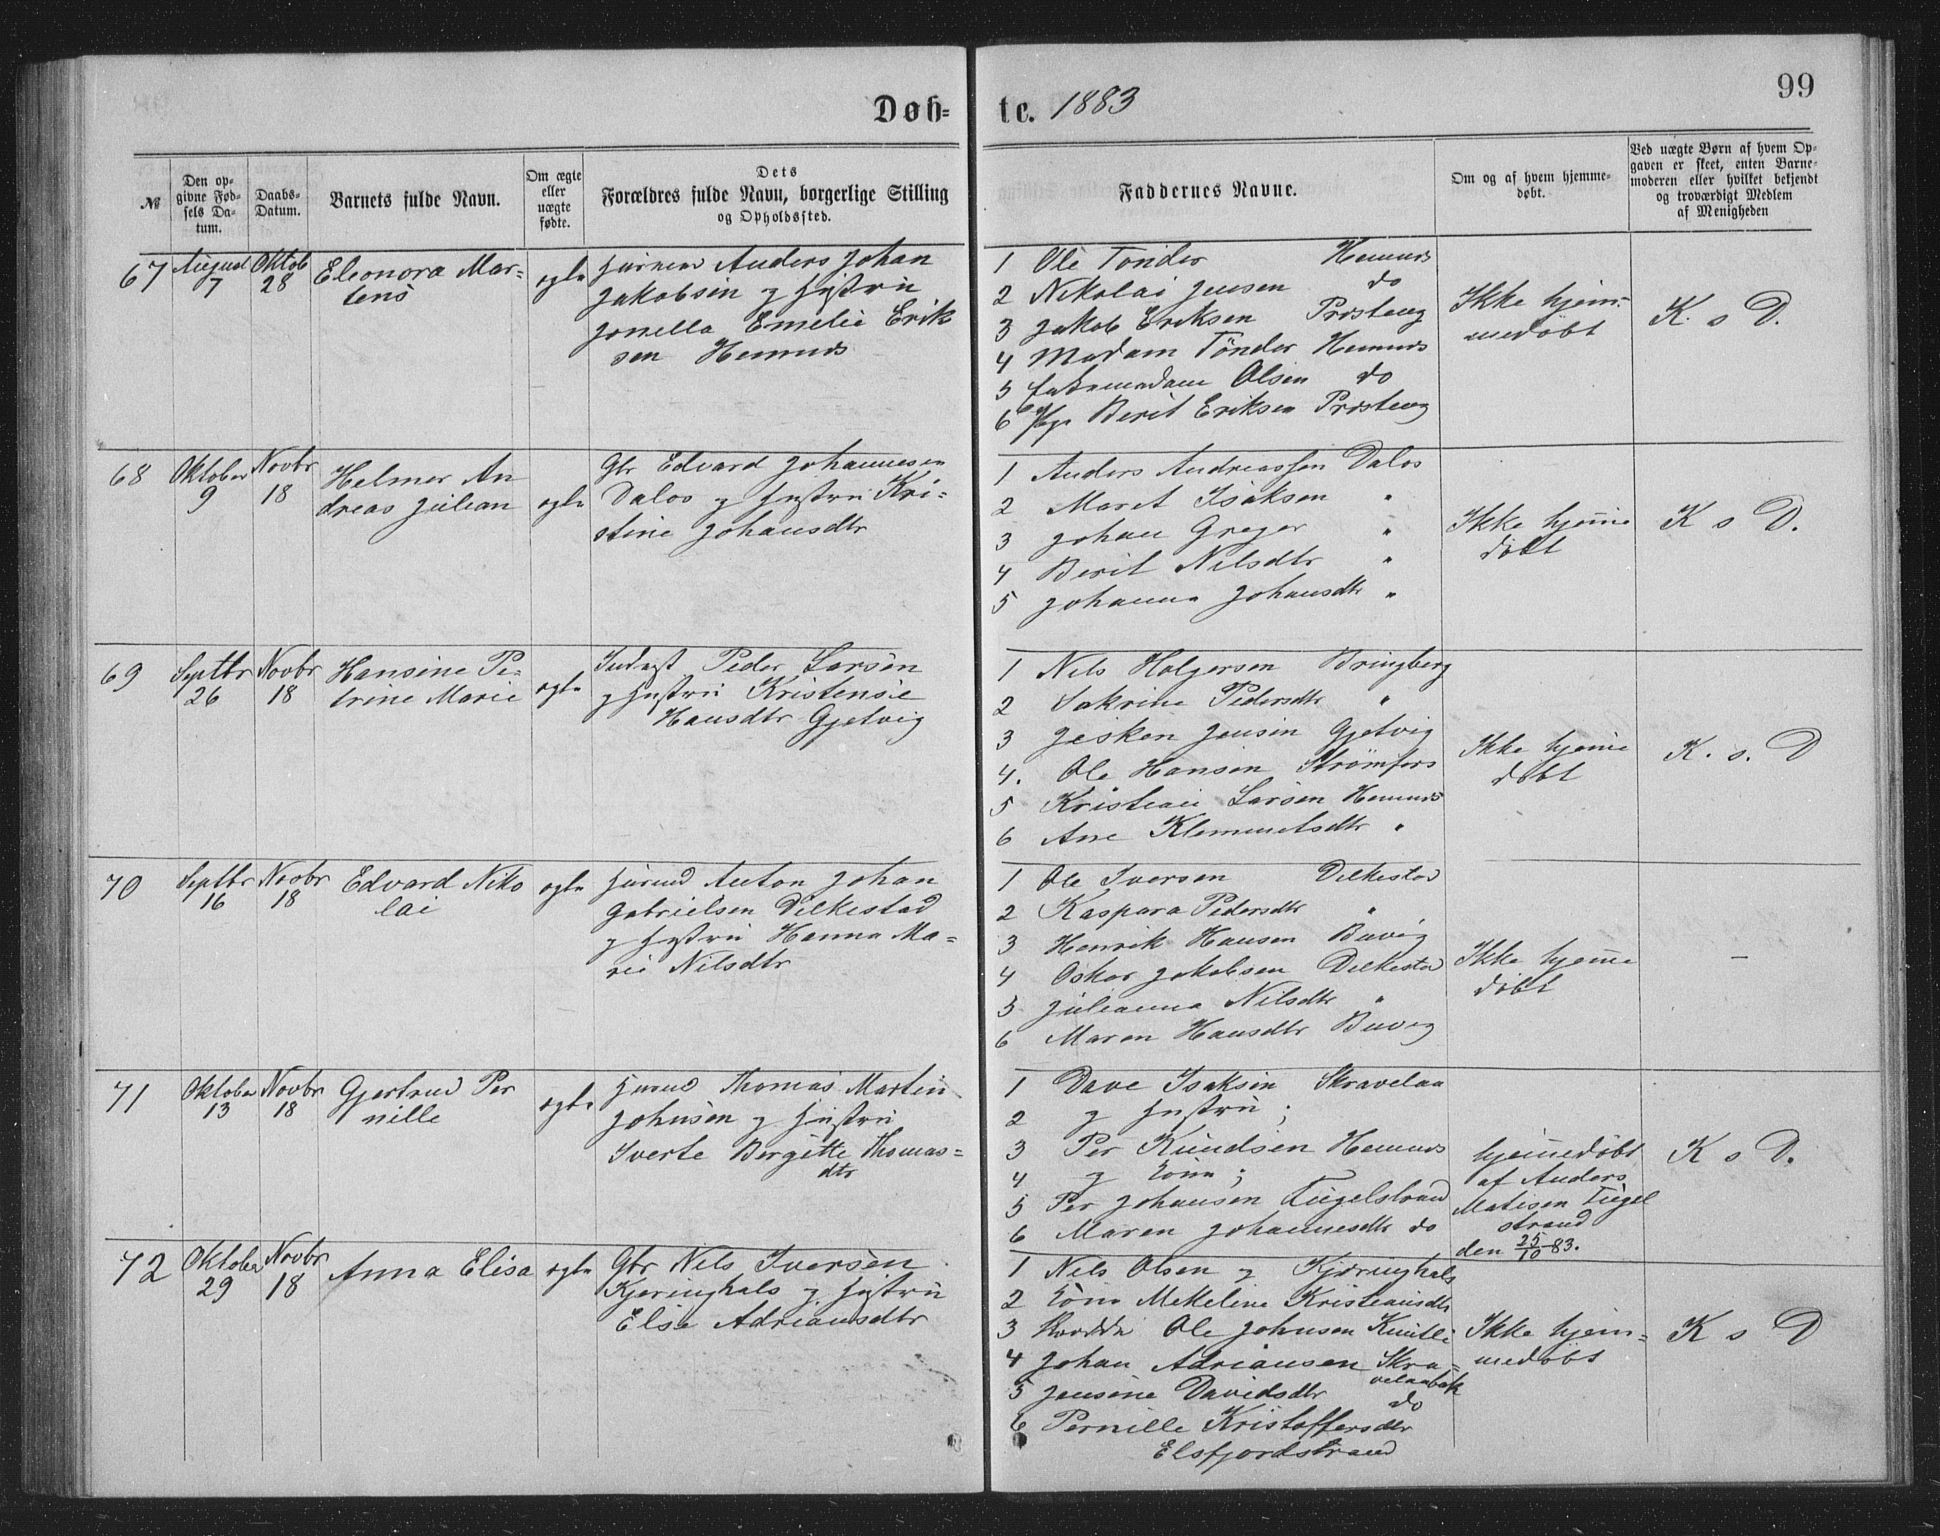 99
Døb=
te. 1883
№
Den op-
givne Fød-
sels Da-
tum.
Daabs-
Datum.
Barnets fulde Navn.
Om ægte
eller
uægte
fødte.
Dets
Forældres fulde Navn, borgerlige Stilling
og Opholdssted.
Faddernes Navne.
Om og af hvem hjemme-
døbt.
Ved uægte Børn af hvem Op-
gaven er skeet, enten Barne-
moderen eller hvilket bekjendt
og troværdigt Medlem
af Menigheden
67
August
7
Oktob
28
Eleonora Mar-
tens
ægte
Anders Johan
Jakobsen og Hustru
Jonella Emelie Erik
sen Hemnes
1 Ole Tønder Hemnes
2 Nikolai Jensen do
3 Jakob Eriksen Presteng
4 Madam Tønder Hemnes
5 Olsen do
6 Berit Eriksen Presteng
Ikke hjem-
medøbt
K. s D.
68
Oktober
9
Novbr
18
Helmer An
dreas Julian
ægte
Gbr Edvard Johannesen
Dalos og Hustru Kri-
stine Johansdtr
1 Anders Andreassen Dalos
2 Maret Isaksen "
3 Johan Greger "
4 Berit Nilsdtr "
5 Johanna Johansdtr "
Ikke hjeme
døbt
K s D.
69
Septbr
26
Novbr
18
Hansine Pe-
trine Marie
ægte
Inderst Peder Larsen
og Hustru Kristensie
Hansdtr Gjetvig
1 Nils Holgersen Bringberg
2 Sakrine Pedersdtr "
3 Jensen Gjetvig
4. Ole Hansen Strømfors
5 Kristian Larsen Hemnes
6 Ane Klemmetsdtr "
Ikke hjeme
døbt
K. s. D
70
Septbr
16
Novbr
18
Edvard Niko
lai
ægte
Husmd Anton Johan
Gabrielsen Dilkestad
og Hustru Hanna Ma-
rie Nilsdtr
1 Ole Iversen Dilkestad
2 Kaspara Pedersdtr "
3 Henrik Hansen Buvig
4 Oskar Jakobsen Dilkestad
5 Julianna Nilsdtr "
6 Maren Hansdtr Buvig
Ikke hjeme
døbt
–
71
Oktober
13
Novbr
18
Gjertrud Per
nille
ægte
Husmd Thomas Martin
Johnsen og Hustru
Iverte Bergitte Thomas-
dtr
1 Dave Isaksen Skravelaa
2 og Hustru ;
3 Per Knudsen Hemnes
4 og Kone ;
5 Per Johansen Fugelstrand
6 Maren Johannesdtr do
hjemedøbt
af Anders
Matisen Fugel
strand
den 25/10 83.
K s D.
72
Oktober
29
Novbr
18
Anna Elisa
ægte
Gbr Nils Iversen
Kjeringhals og Hustru
Else Adriansdtr
1 Nils Olsen og Kjæringhals
2 Kone Mekeline Kristiansdtr
3 Ole Johnsen Knutli
4 Johan Adriansen Skra-
velaabak
5 Jensine Davidsdtr do
6 Pernille Kristoffersdtr
Elsfjordstrand
Ikke hjem-
medøbt
K s D